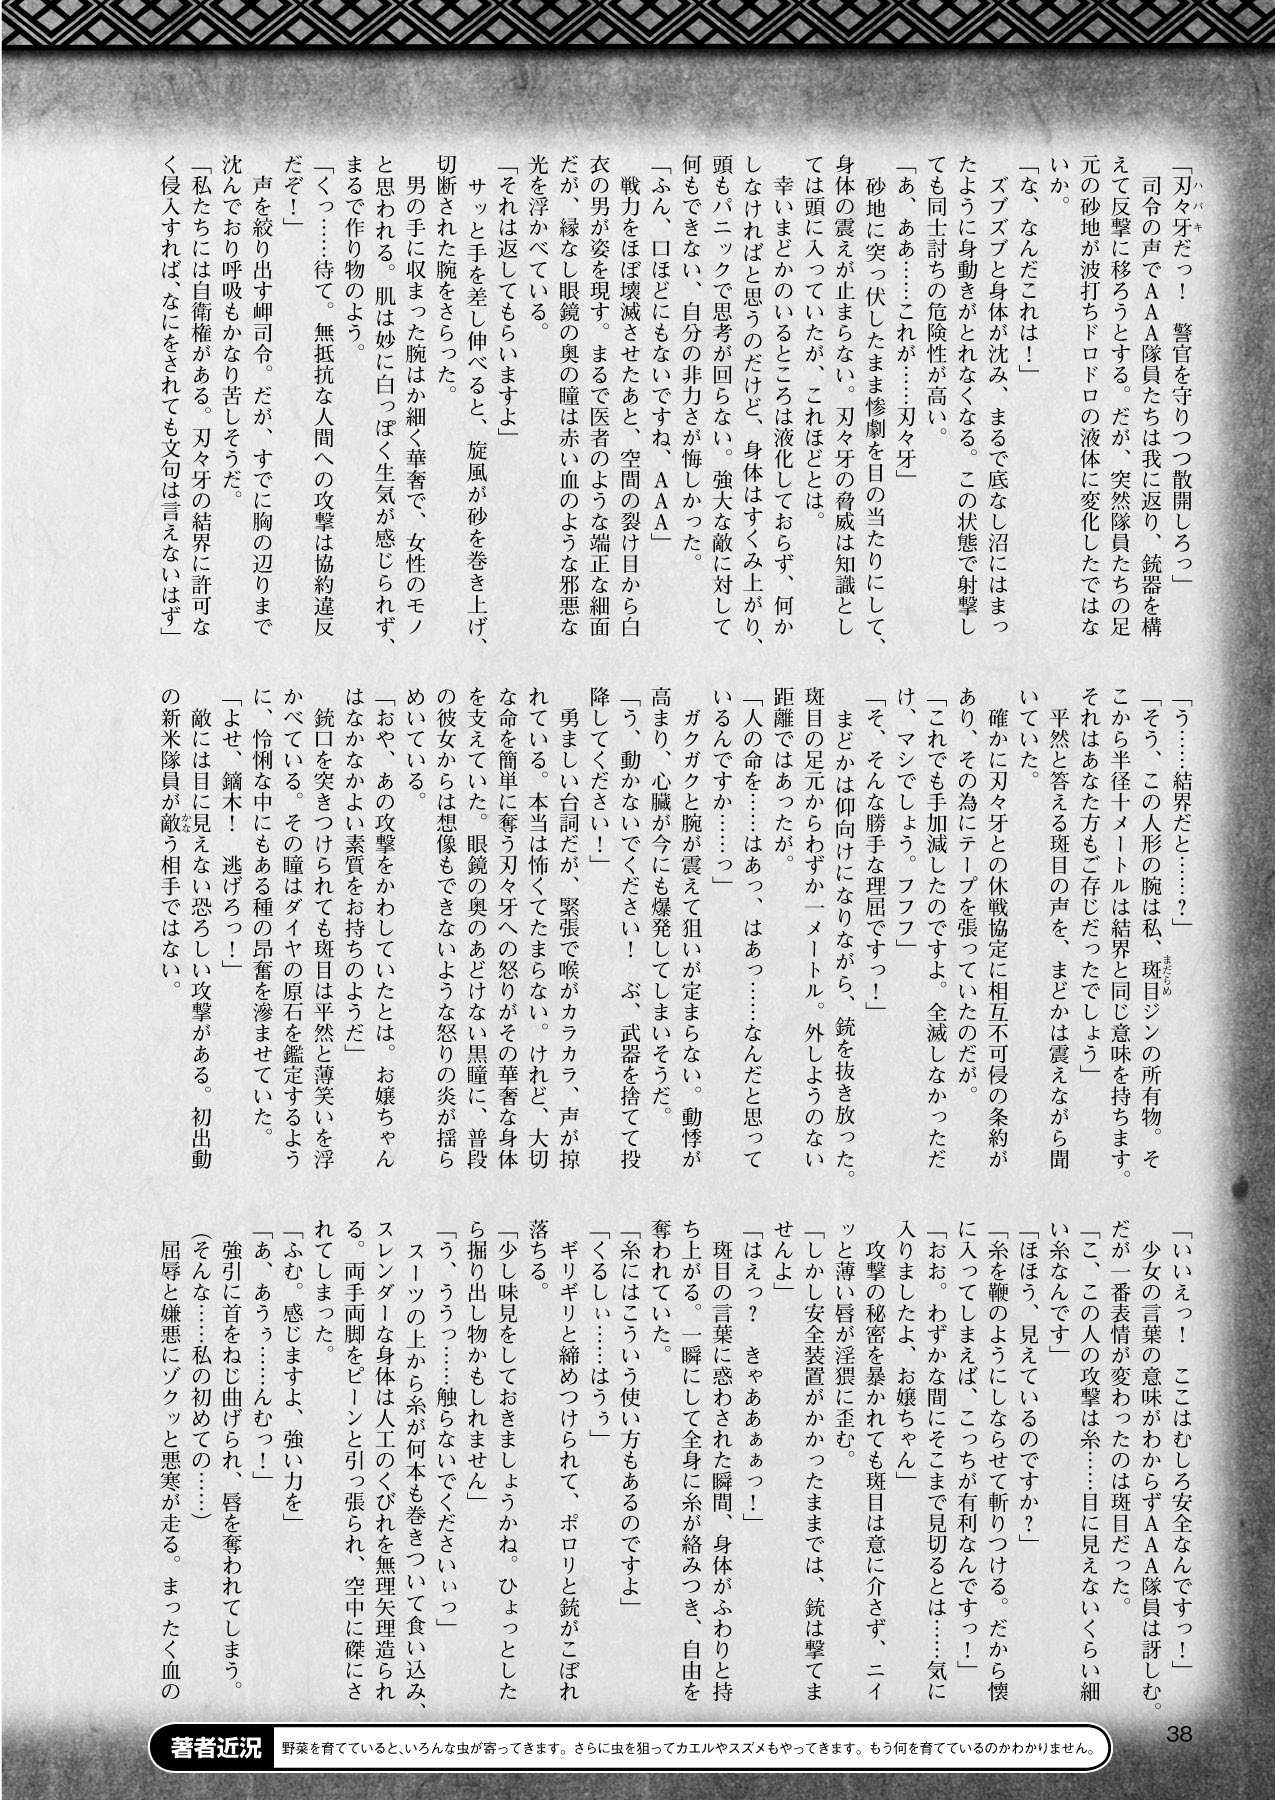 「刃々牙だっ!　警官を守りつつ散開しろっ」
ハバキ
　司令の声でＡＡＡ隊員たちは我に返り、銃器を構
えて反撃に移ろうとする。だが、突然隊員たちの足
元の砂地が波打ちドロドロの液体に変化したではな
いか。
「な、なんだこれは!」
　ズブズブと身体が沈み、まるで底なし沼にはまっ
たように身動きがとれなくなる。この状態で射撃し
ても同士討ちの危険性が高い。
「あ、ああ……これが……刃々牙」
　砂地に突っ伏したまま惨劇を目の当たりにして、
身体の震えが止まらない。刃々牙の脅威は知識とし
ては頭に入っていたが、これほどとは。
　幸いまどかのいるところは液化しておらず、何か
しなければと思うのだけど、身体はすくみ上がり、
頭もパニックで思考が回らない。強大な敵に対して
何もできない、自分の非力さが悔しかった。
「ふん、口ほどにもないですね、ＡＡＡ」
　戦力をほぼ壊滅させたあと、空間の裂け目から白
衣の男が姿を現す。まるで医者のような端正な細面
だが、縁なし眼鏡の奥の瞳は赤い血のような邪悪な
光を浮かべている。
「それは返してもらいますよ」
　サッと手を差し伸べると、旋風が砂を巻き上げ、
切断された腕をさらった。
　男の手に収まった腕はか細く華奢で、女性のモノ
と思われる。肌は妙に白っぽく生気が感じられず、
まるで作り物のよう。
「くっ……待て。無抵抗な人間への攻撃は協約違反
だぞ!」
　声を絞り出す岬司令。だが、すでに胸の辺りまで
沈んでおり呼吸もかなり苦しそうだ。
「私たちには自衛権がある。刃々牙の結界に許可な
く侵入すれば、なにをされても文句は言えないはず」
「う……結界だと……?」
「そう、この人形の腕は私、斑目ジンの所有物。そ
まだらめ
こから半径十メートルは結界と同じ意味を持ちます。
それはあなた方もご存じだったでしょう」
　平然と答える斑目の声を、まどかは震えながら聞
いていた。
　確かに刃々牙との休戦協定に相互不可侵の条約が
あり、その為にテープを張っていたのだが。
「これでも手加減したのですよ。全滅しなかっただ
け、マシでしょう。フフフ」
「そ、そんな勝手な理屈ですっ!」
　まどかは仰向けになりながら、銃を抜き放った。
斑目の足元からわずか一メートル。外しようのない
距離ではあったが。
「人の命を……はあっ、はあっ……なんだと思って
いるんですか……っ」
　ガクガクと腕が震えて狙いが定まらない。動悸が
高まり、心臓が今にも爆発してしまいそうだ。
「う、動かないでください!　ぶ、武器を捨てて投
降してください!」
　勇ましい台詞だが、緊張で喉がカラカラ、声が掠
れている。本当は怖くてたまらない。けれど、大切
な命を簡単に奪う刃々牙への怒りがその華奢な身体
を支えていた。眼鏡の奥のあどけない黒瞳に、普段
の彼女からは想像もできないような怒りの炎が揺ら
めいている。
「おや、あの攻撃をかわしていたとは。お嬢ちゃん
はなかなかよい素質をお持ちのようだ」
　銃口を突きつけられても斑目は平然と薄笑いを浮
かべている。その瞳はダイヤの原石を鑑定するよう
に、怜悧な中にもある種の昂奮を滲ませていた。
「よせ、鏑木!　逃げろっ!」
　敵には目に見えない恐ろしい攻撃がある。初出動
の新米隊員が敵う相手ではない。
かな
「いいえっ!　ここはむしろ安全なんですっ!」
　少女の言葉の意味がわからずＡＡＡ隊員は訝しむ。
だが一番表情が変わったのは斑目だった。
「こ、この人の攻撃は糸……目に見えないくらい細
い糸なんです」
「ほほう、見えているのですか?」
「糸を鞭のようにしならせて斬りつける。だから懐
に入ってしまえば、こっちが有利なんですっ!」
「おお。わずかな間にそこまで見切るとは……気に
入りましたよ、お嬢ちゃん」
　攻撃の秘密を暴かれても斑目は意に介さず、ニイ
ッと薄い唇が淫猥に歪む。
「しかし安全装置がかかったままでは、銃は撃てま
せんよ」
「はえっ?　きゃあぁぁっ!」
　斑目の言葉に惑わされた瞬間、身体がふわりと持
ち上がる。一瞬にして全身に糸が絡みつき、自由を
奪われていた。
「糸にはこういう使い方もあるのですよ」
「くるしぃ……はうぅ」
　ギリギリと締めつけられて、ポロリと銃がこぼれ
落ちる。
「少し味見をしておきましょうかね。ひょっとした
ら掘り出し物かもしれません」
「う、ううっ……触らないでくださいぃっ」
　スーツの上から糸が何本も巻きついて食い込み、
スレンダーな身体は人工のくびれを無理矢理造られ
る。両手両脚をピーンと引っ張られ、空中に磔にさ
れてしまった。
「ふむ。感じますよ、強い力を」
「あ、あうぅ……んむっ!」
　強引に首をねじ曲げられ、唇を奪われてしまう。
(そんな……私の初めての……)
　屈辱と嫌悪にゾクッと悪寒が走る。まったく血の
38
著者近況
野菜を育てていると、いろんな虫が寄ってきます。さらに虫を狙ってカエルやスズメもやってきます。もう何を育てているのかわかりません。